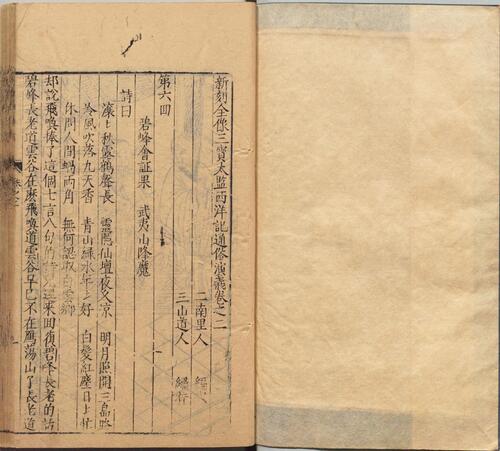 新刻全像三寶太監西洋記通俗演義卷之二
二南里人
三山道人
第六回
碧峰會証果 武夷山降魔
詩曰
凛〻秋露鶴聲長 靈隱仙壇夜久凉 明月照開三島路
冷風吹落九天香 青山綠水年〻好 白髮紅塵日〻忙
休問人間蝸兩角 無何認取白雲鄉
却說飛喚捧了這個七言八句的詩 逕來回復碧峰長老的話
碧峰長老道雲谷在麽飛喚道雲谷早已不在鴈蕩山了長老道